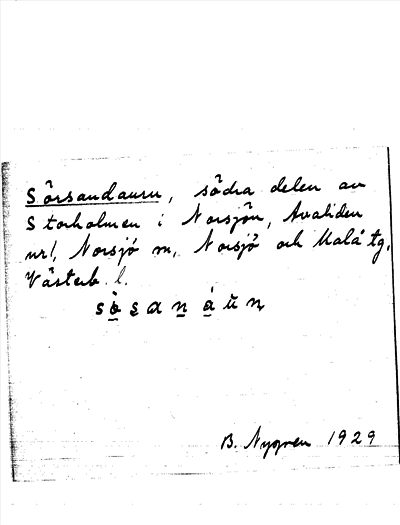 Sörsandaurn, södra delen av
Storholmen i Norsjön, Avaliden
nr1, Norsjö sn, Norsjö och Malå tg,
Västerb. l.
B. Nygren 1929